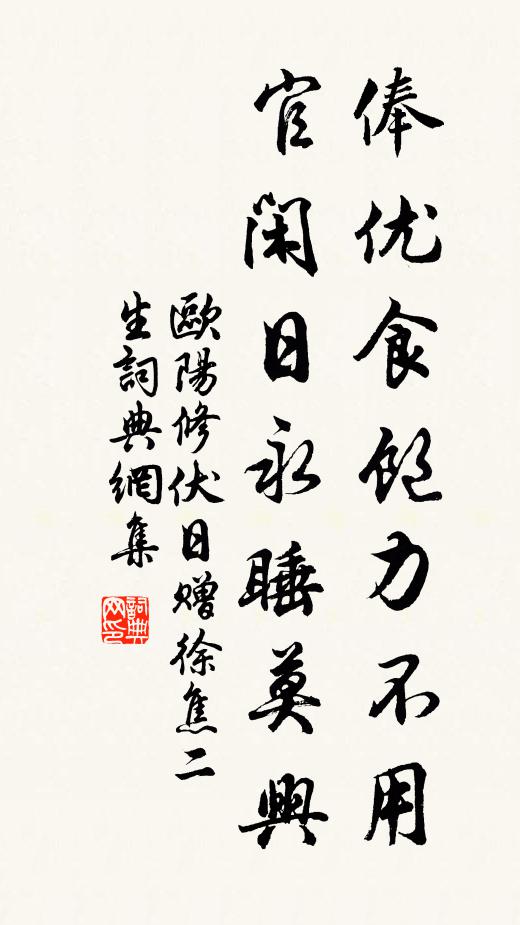 俸优食飽力不用
官閑日永睡莫興
歐陽修伏日赠徐焦二
生詞典網集
詞典
网印